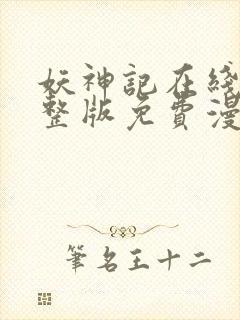 妖神記在綫
整版免費漫
筆名王十二